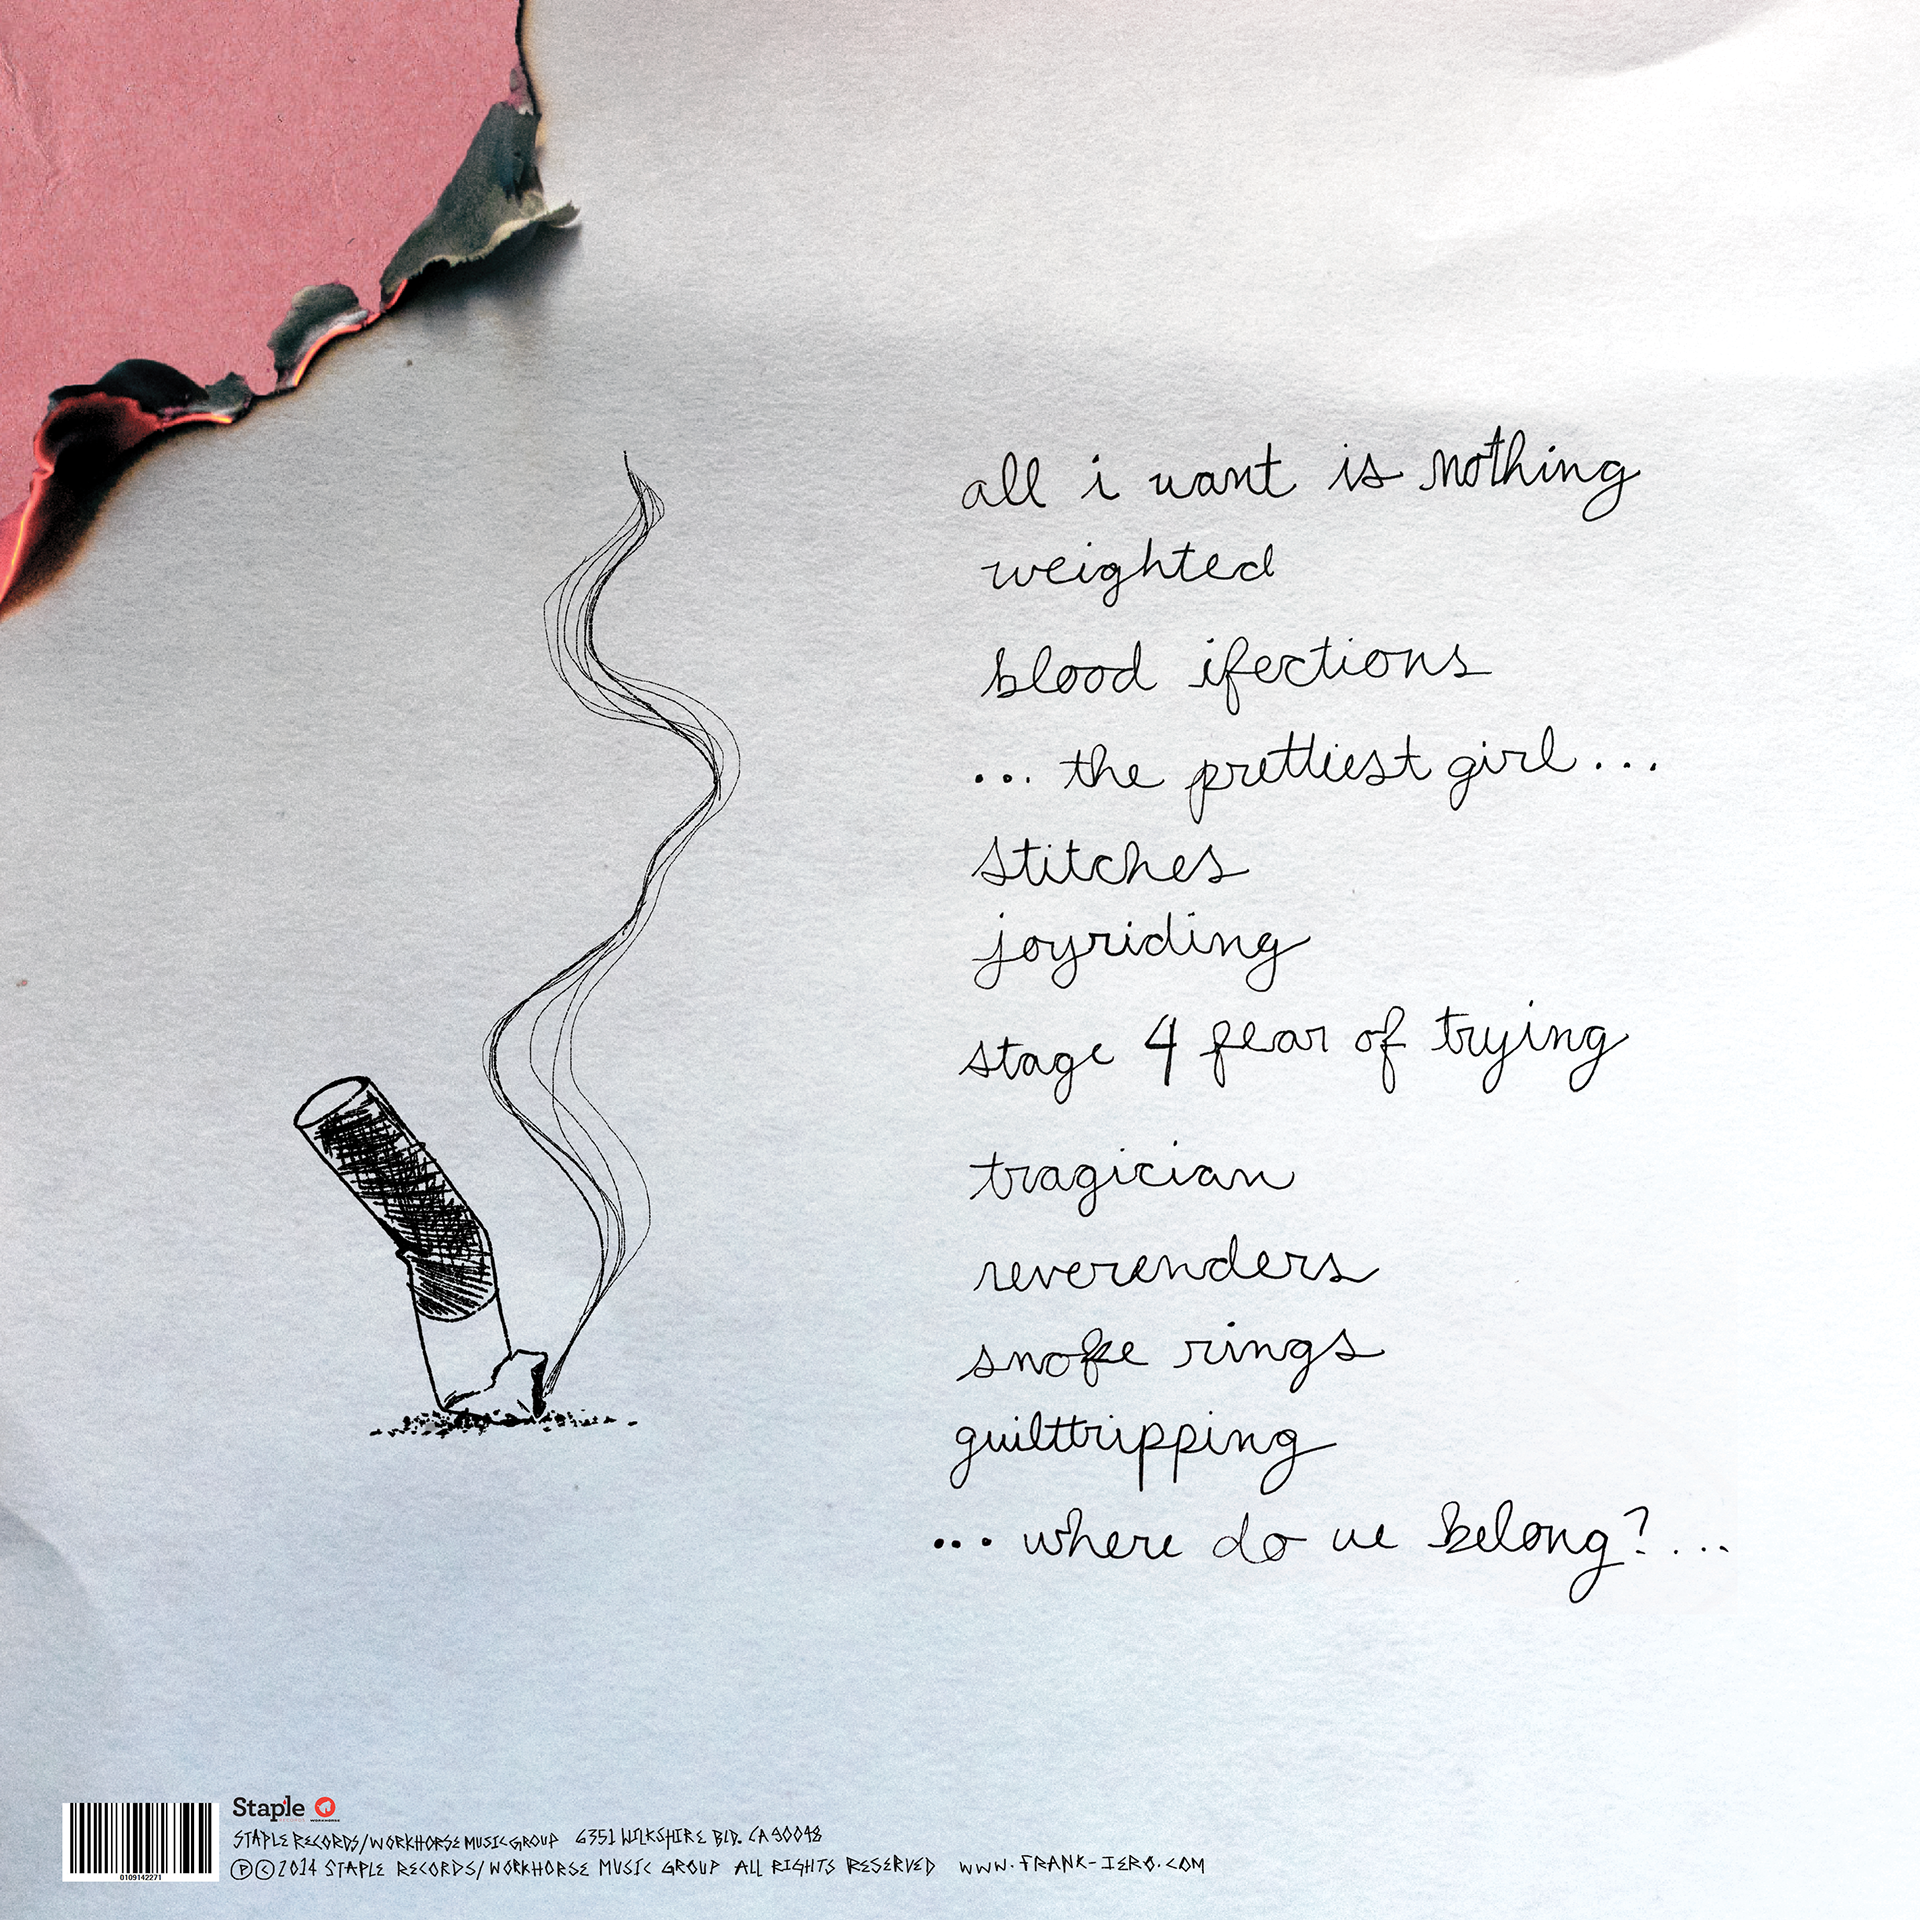 all i want is nothing
weighted
blood ifections
... the prettiest girl ...
stitches
joyriding
stage 4 fear of trying
tragician
reverenders
smoke rings
guilttripping
... where do we belong? ...
Staple
STAPLE RECORDS/WORKHORSE MUSIC GROUP 6351 WILKSHIRE BLD. CA 90048
℗©2014 STAPLE RECORDS/WORKHORSE MUSIC GROUP ALL RIGHTS RESERVED WWW.FRANK-IERO.COM
0109142271